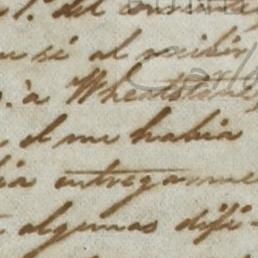 del
si al recibir
à Wheatstone
el me habia
entregarme
algunas difi-